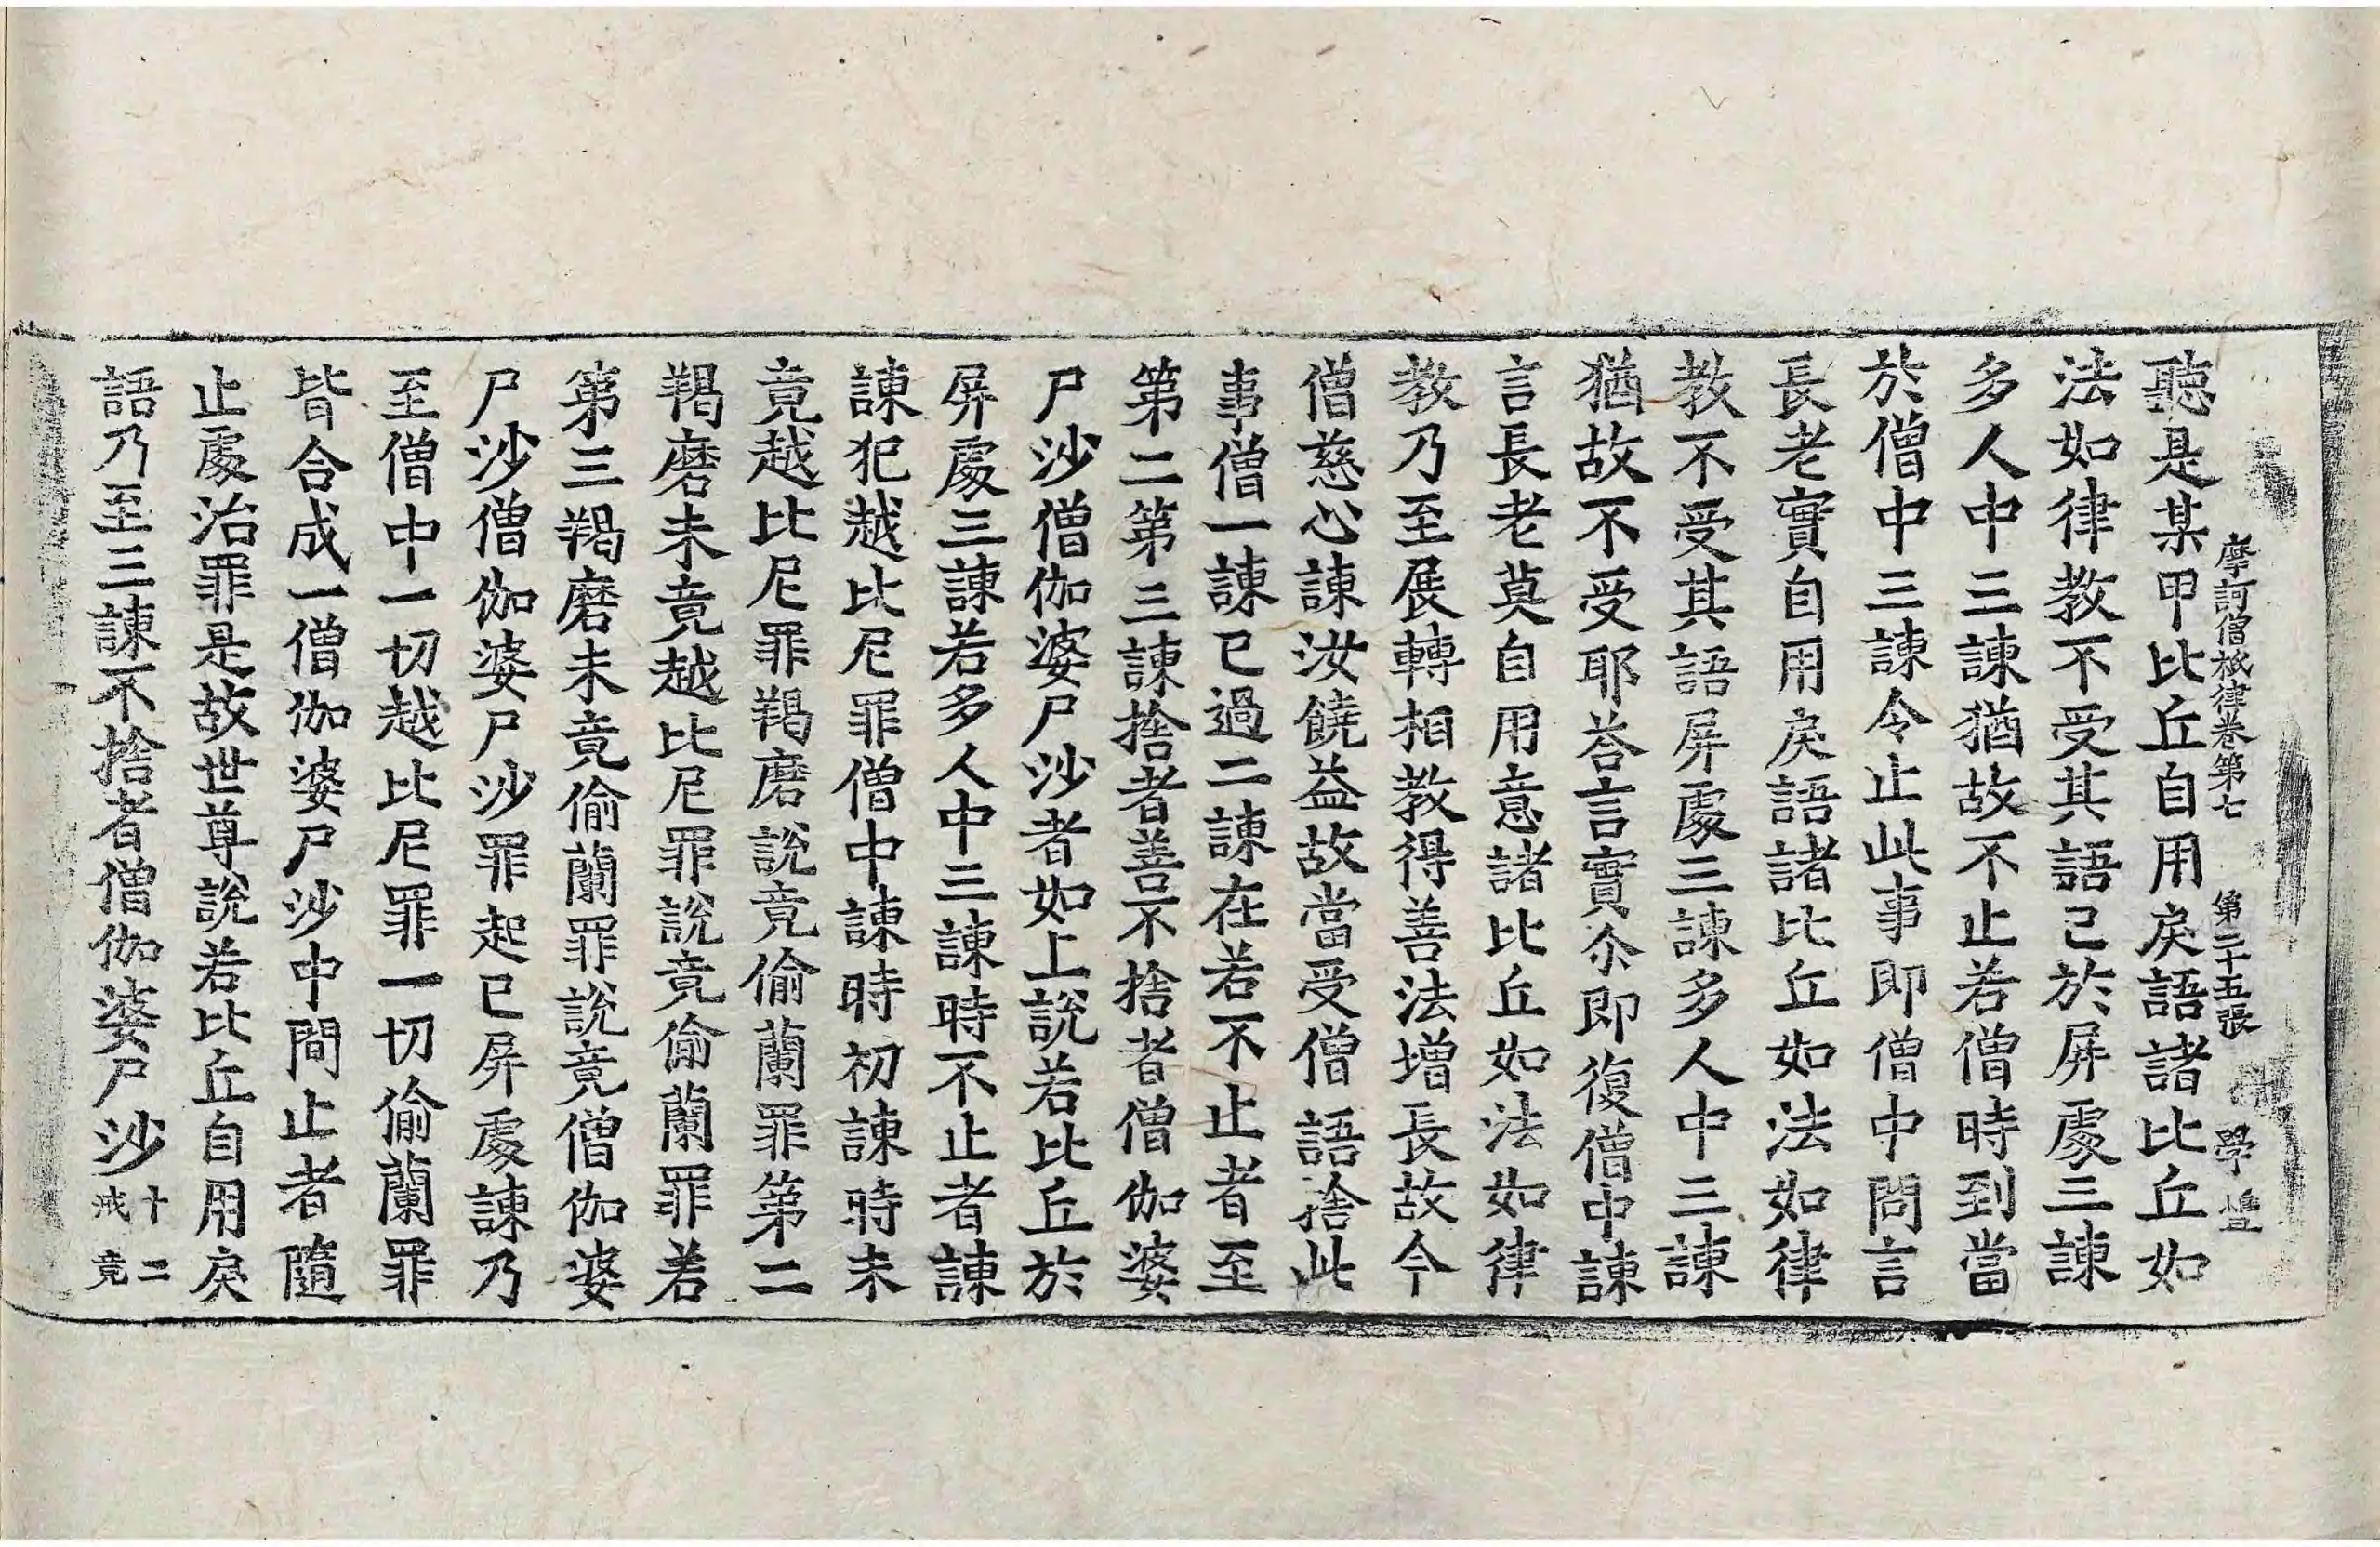 摩訶僧祇律卷第七　第二十五張　學
聽是某甲比丘自用戾語諸比丘如
法如律教不受其語已於屏處三諫
多人中三諫猶故不止若僧時到當
於僧中三諫令止此事即僧中問言
長老實自用戾語諸比丘如法如律
教不受其語屏處三諫多人中三諫
猶故不受耶荅言實尒即復僧中諫
言長老莫自用意諸比丘如法如律
教乃至展轉相教得善法增長故今
僧慈心諫汝饒益故當受僧語捨此
事僧一諫已過二諫在若不止者至
第二第三諫捨者善不捨者僧伽婆
尸沙僧伽婆尸沙者如上說若比丘於
屏處三諫若多人中三諫時不止者諫
諫犯越比尼罪僧中諫時初諫時未
竟越比尼罪羯磨說竟偷蘭罪第二
羯磨未竟越比尼罪說竟偷蘭罪若
第三羯磨未竟偷蘭罪說竟僧伽婆
尸沙僧伽婆尸沙罪起已屏處諫乃
至僧中一切越比尼罪一切偷蘭罪
皆合成一僧伽婆尸沙中間止者隨
止處治罪是故世尊說若比丘自用戾
語乃至三諫不捨者僧伽婆尸沙十二戒竟